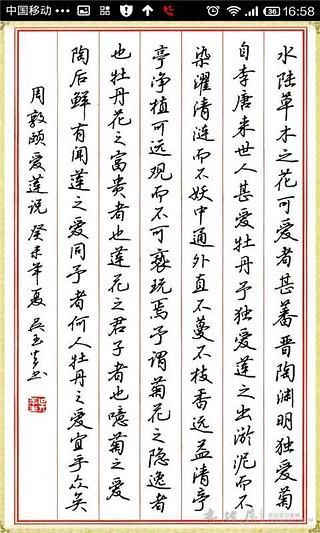 中国移动 16:58
水陆草木之花可爱者甚蕃晋陶渊明独爱菊
自李唐来世人甚爱牡丹予独爱莲之出淤泥而不
染濯清涟而不妖中通外直不蔓不枝香远益清亭
亭净植可远观而不可亵玩焉予谓菊花之隐逸者
也牡丹花之富贵者也莲花之君子者也噫菊之爱
陶后鲜有闻莲之爱同予者何人牡丹之爱宜乎众矣
周敦颐爱莲说 癸未年夏 吴玉生书